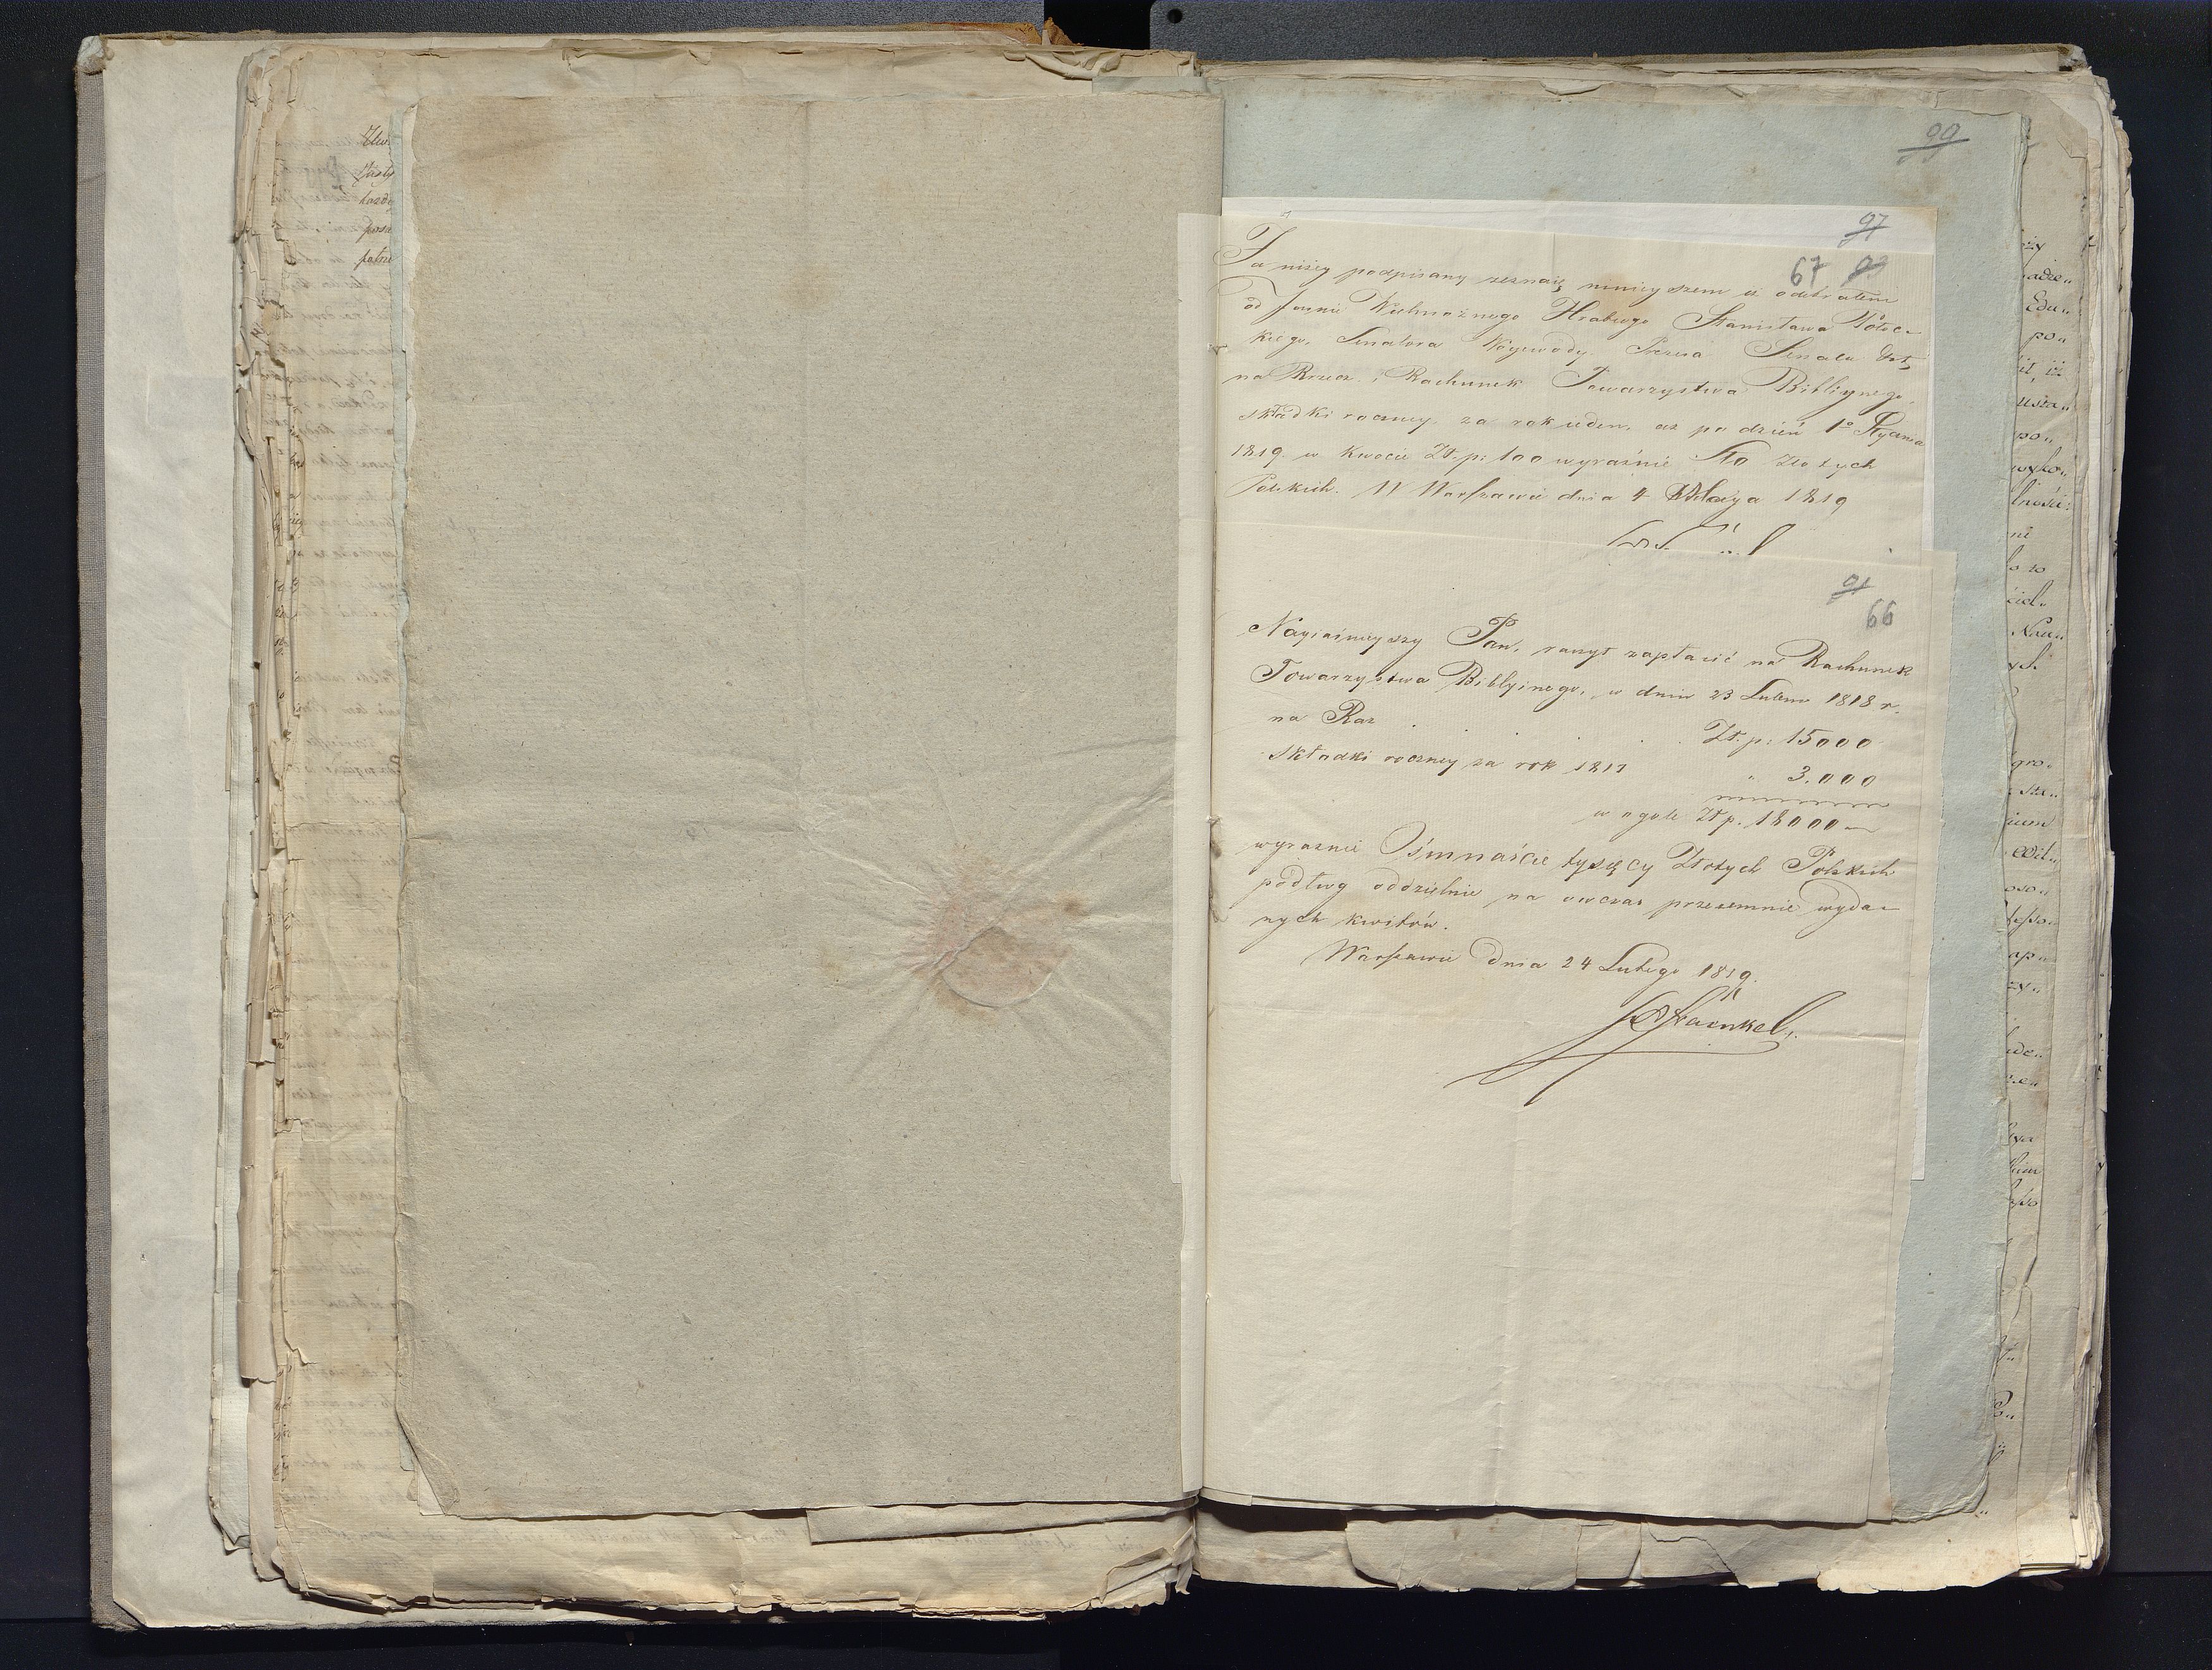 99
97
67
Ja niżey podpisany zeznaię ninieyszem iż odebrałem
od Jaśnie Wielmożnego Hrabiego Stanisława Potoc-
kiego, Senatora Wojewody Prezesa Senatu &&
na Rzecz i Rachunek Towarzystwa Bibliynego,
składki roczney, za rok ieden, aż po dzień 1º Stycznia
1819. w kwocie Zł. p: 100 wyraźnie Sto Złotych
Polskich. W Warszawie dnia 4 Maja 1819
91
66
Nayiaśnieyszy Pan, raczył zapłacić na Rachunek
Towarzystwa Biblyinego, w dniu 23 Lutem 1818 r.
na Raz . . . . Zł. p: 15000
składki roczney za rok 1817 " 3.000
w ogole Zł p. 18000
wyraznie Ośmnaście tysięcy Złotych Polskich
podług oddzielnie na owczas przezemnie wyda-
nych kwitów.
Warszawie Dnia 24 Lutego 1819.
Fraenkel